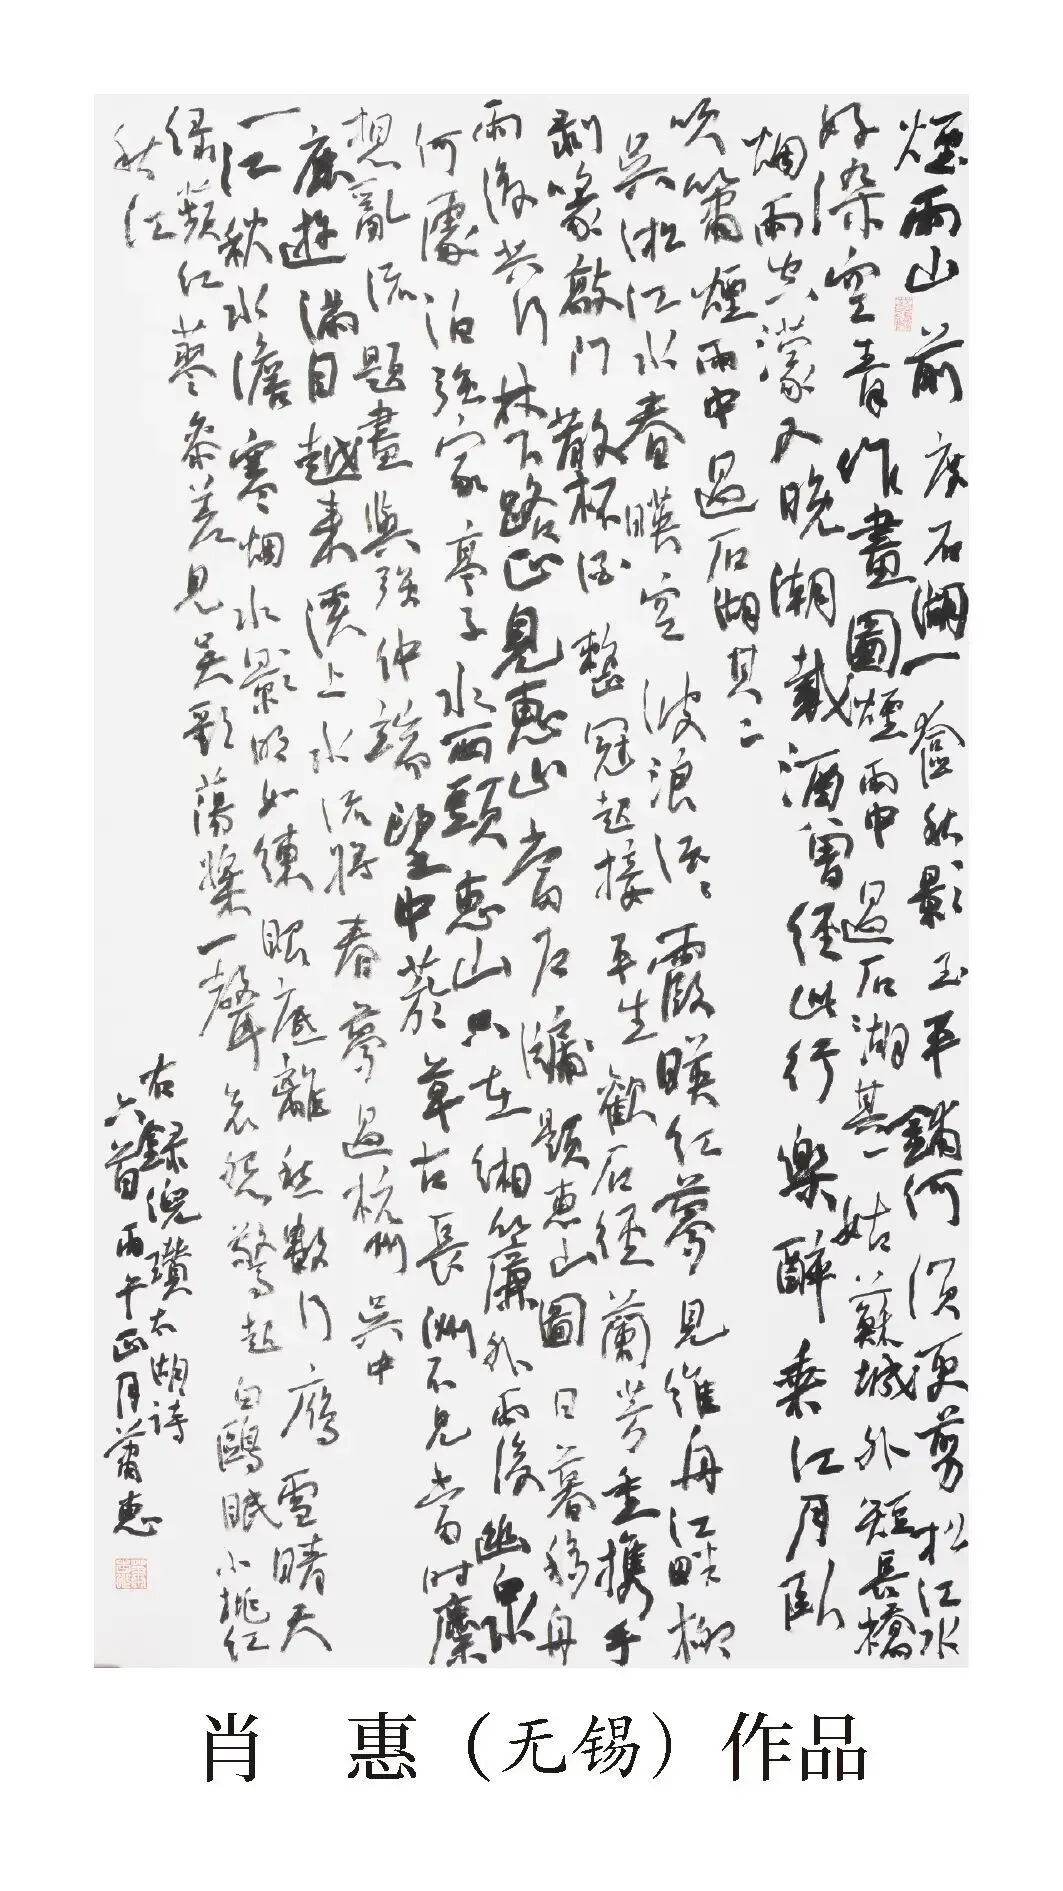 煙雨山前度石湖一奩秋影玉平鋪何須更剪松江水
好染空青作畫圖煙雨中過石湖其一姑蘇城外短長橋
烟雨空濛又晚潮載酒曾經此行樂醉乘江月臥
吹簫煙雨中過石湖其二
吳淞江水春暎空波浪浮霞暎紅夢見維舟江畔柳
剥啄敲門散杯酒整冠起接平生歡石徑蘭芳重攜手
雨後共行林下路正見惠山當石牖題惠山圖日暮移舟
何處泊強家亭子水西頭惠山只在緗簾外雨後幽泉
想亂流題畫與強仲端望中荒草古長洲不見當時麋
鹿遊滿目越來溪上水流將春夢過杭州吳中
一江秋水澹寒烟水影明如練眼底離愁數行雁雪晴天
綠蘋紅蓼參差見吳歌蕩槳一聲哀怨驚起白鷗眠小桃紅
秋江
右錄倪瓚太湖詩
六首丙午正月蕭惠
肖 惠（无锡）作品